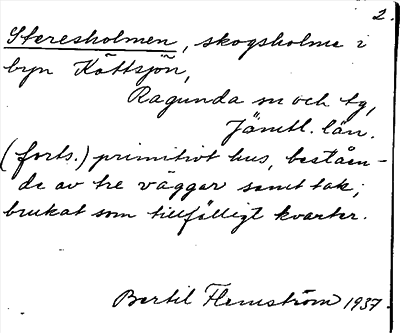 2.
Steresholmen, skogsholme i
byn Köttsjön,
Ragunda sn och tg,
Jämtl. län.
(forts.) primitivt hus, beståen-
de av tre väggar samt tak;
brukat som tillfälligt kvarter.
Bertil Flemström 1937.